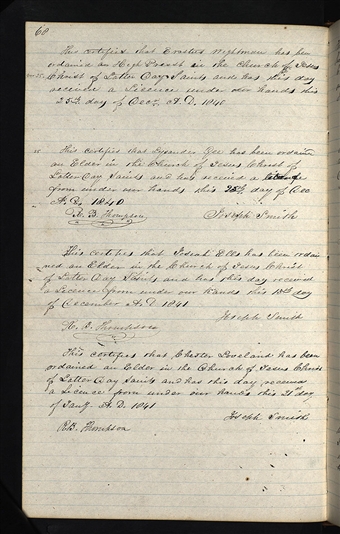 60
This certifies that Erastus Wightman has been
ordained an High Priest in the Church of Jesus
Christ of Latter Day Saints and has this day
received a Licence under our hands this
25th day of Decr A.D. 1840
This certifies that Lysander Gee has been ordained
an Elder in the Church of Jesus Christ of
Latter Day Saints and has received a licence
from under our hands this 25th day of Dec
A.D. 1840
R. B. Thompson Joseph Smith
This certifies that Josiah Ells has been ordai
ned an Elder in the Church of Jesus Christ
of Latter Day Saints and has this day received
a Licence from under our hands this day
of December A.D. 1841
Joseph Smith
R. B. Thompson
This certifies that Chester Loveland has been
ordained an Elder in the Church of Jesus Christ
of Latter Day Saints and has this day received
a Licence from under our hands this 21st
of Jany A.D. 1841
Joseph Smith
R.B. Thompson